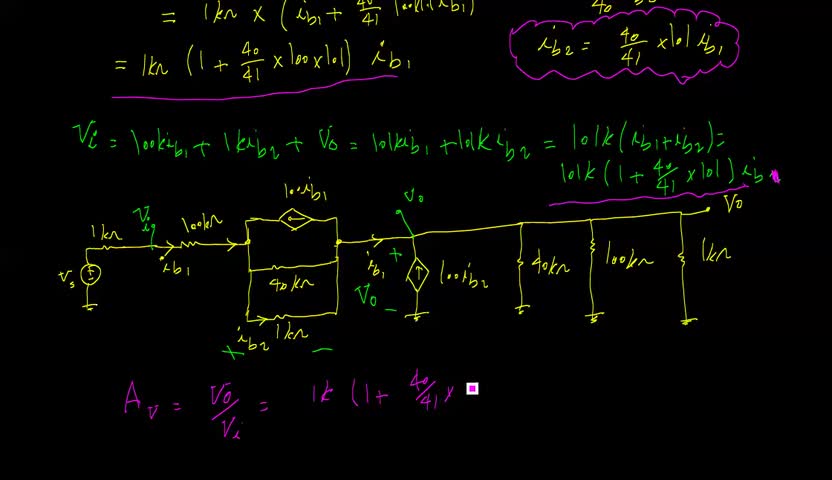 = 1kΩ × (i_b1 + 40/41 100×101 i_b1)
i_b2 = 40/41 × 101 i_b1
= 1kΩ (1 + 40/41 × 100 × 101) i_b1
V_i = 100k i_b1 + 1k i_b2 + V_o = 101k i_b1 + 101k i_b2 = 101k (i_b1 + i_b2) =
101k (1 + 40/41 × 101) i_b1
100i_b1
V_i
V_o
V_o
1kΩ
100kΩ
i_b1
V_s
40kΩ
i_b2
1kΩ
+ −
i_b1
+
V_o
−
100i_b2
40kΩ
100kΩ
1kΩ
A_v = V_o/V_i = 1k (1 + 40/41 ×